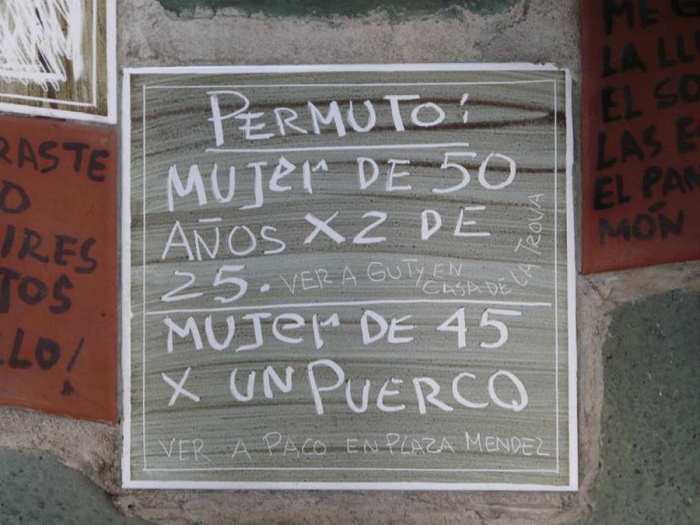 PERMUTO:
MUJER DE 50
AÑOS X2 DE
25. VER A GUTY EN
CASA DE LA TROVA
MUJER DE 45
X UN PUERCO
VER A PACO EN PLAZA MENDEZ
RASTE
O
IRES
TOS
LLO!
ME
LA LU
EL SO
LAS E
EL PAN
MÓN